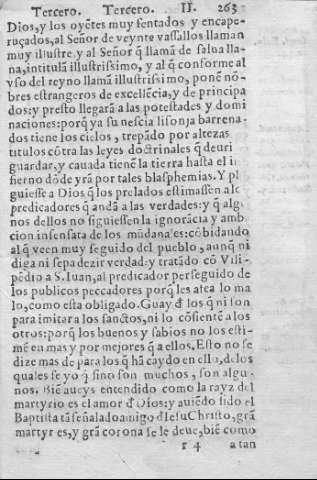 Tercero. Tercero. II. 263
Dios, y los oyẽtes muy sentados y encape-
ruçados, al Señor de veynte vassallos llaman
muy illustre, y al Señor q̃ llamã de salua lla-
na, intitulã illustrissimo, y al q̃ conforme al
vso del reyno llamã illustrissimo, ponẽ nõ-
bres estrangeros de excellẽcia, y de principa
dos: y presto llegarã a las potestades y domi
naciones: porq̃ ya su nescia lisonja barrena-
dos tiene los cielos, trepãdo por altezas
titulos cõtra las leyes doctrinales q̃ deuri
guardar, y cauada tienẽ la tierra hasta el in
fierno dõde yrã por tales blasphemias. Y pl
guiesse a Dios q̃ los prelados estimassen a lo
predicadores q̃ andã a las verdades: y q̃ alg
nos dellos no siguiessen la ignorãcia y amb
cion insensata de los mũdanales: cõbidando
al q̃ veen muy seguido del pueblo, aunq̃ ni
diga ni sepa dezir verdad: y tratãdo cõ vili-
pẽdio a S. Iuan, al predicador perseguido de
los publicos peccadores porq̃ les afea lo ma
lo, como esta obligado. Guay đ los q̃ ni son
para imitar a los sanctos, ni lo cõsiente a los
otros: porq̃ los buenos y sabios no los esti-
mẽ en mas y por mejores q̃ a ellos. Esto no se
dize mas de para los q̃ hã caydo en ello, de los
quales se yo q̃ sino son muchos, son algu-
nos. Biẽ aueys entendido como la rayz del
martyrio es el amor đ Dios: y auiẽdo sido el
Baptista tã señalado amigo đ Iesu Christo, grã
martyr es, y grã corona se le deue, biẽ como
r 4 a tan